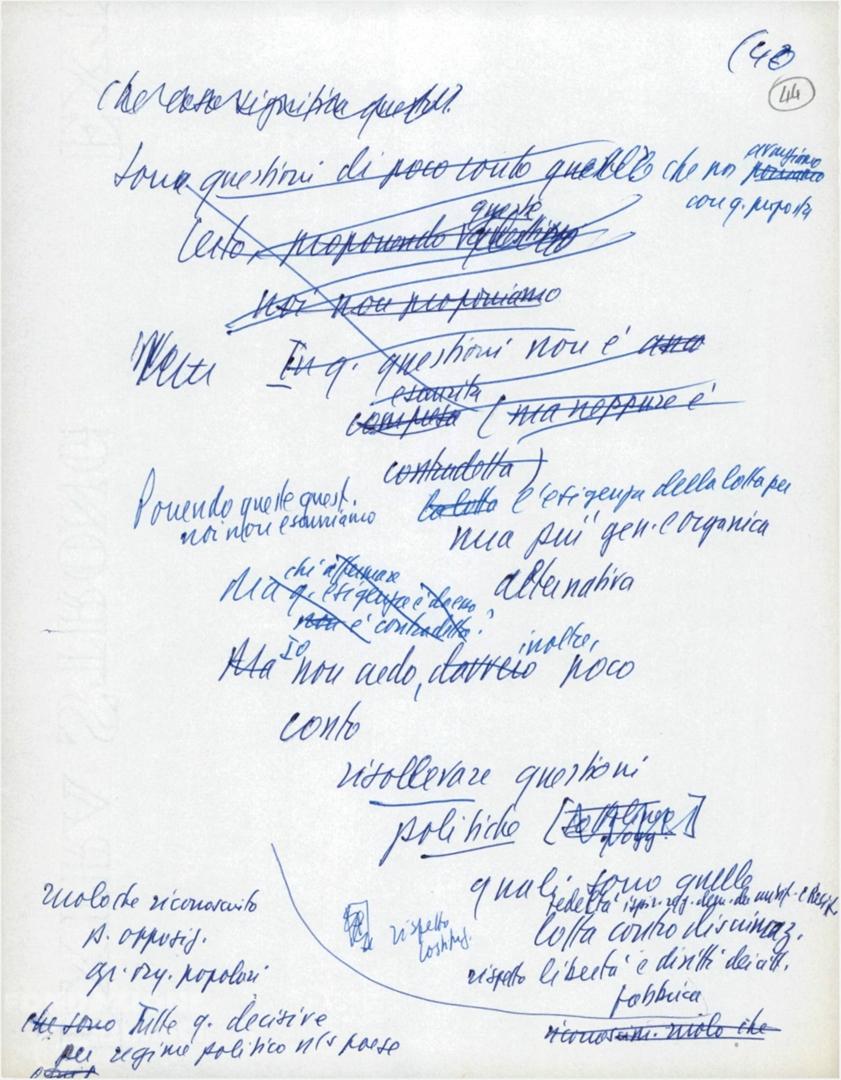 (43
44
Che cosa significa questo?
Sono questioni di poco conto quelle che noi avanziamo
poniamo
con q. proposta
Certo, proponendo queste questioni
noi non proponiamo
In q. questioni non è
esaurita
compresa (ma neppure è
contraddetta)
Ponendo queste quest.
noi non esauriamo
la lotta l'esigenza della lotta per
una più gen. e organica
alternativa
chi affermare
Ma q. esigenza è
non è contraddetta?
Ma Io non credo, davvero inoltre, poco
conto
risollevare questioni
politiche [
quali sono quelle
lotta contro discriminaz.
rispetto libertà e diritti dei citt.
fabbrica
riconoscim. ruolo che
rispetto
costituz.
ruolo che riconosciuto
p. opposiz.
gr. org. popolari
che sono tutte q. decisive
per regime politico n/s paese